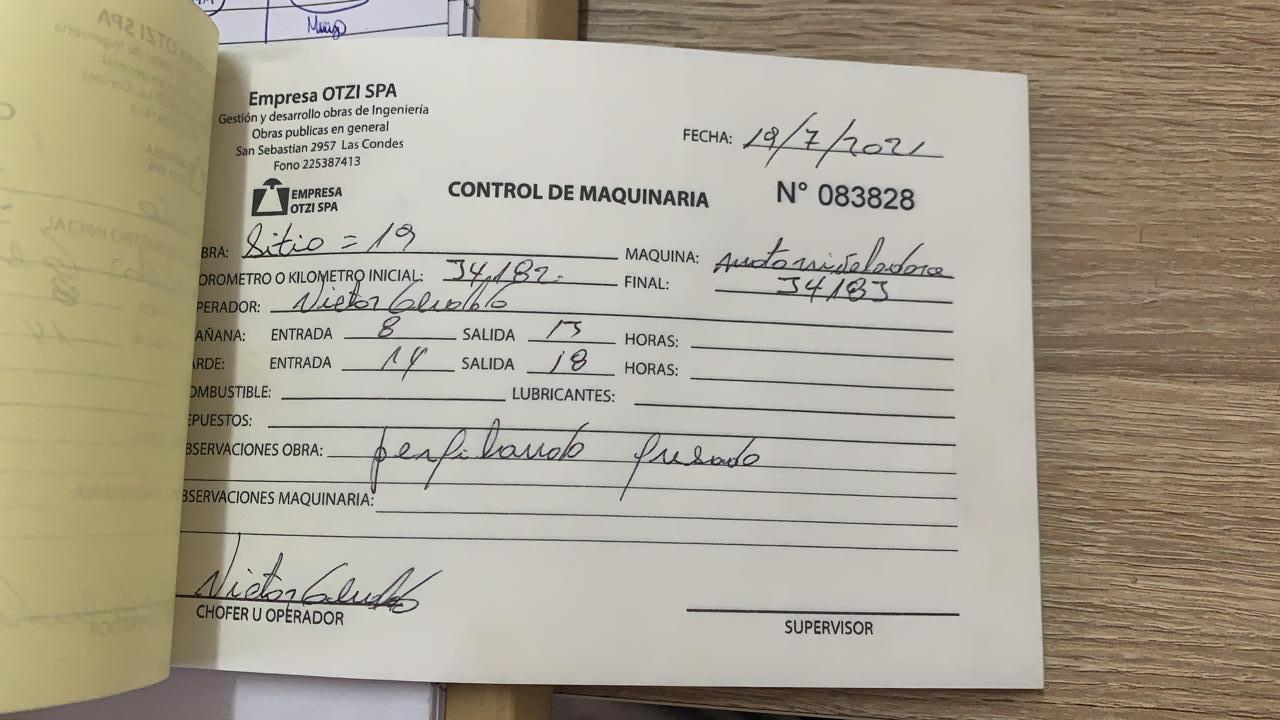 Muñoz
Empresa OTZI SPA
Gestión y desarrollo obras de Ingeniería
Obras publicas en general
San Sebastian 2957 Las Condes
Fono 225387413
EMPRESA
OTZI SPA
FECHA: 19/7/2021
CONTROL DE MAQUINARIA N° 083828
BRA: Sitio = 19 MAQUINA: Motoniveladora
OROMETRO O KILOMETRO INICIAL: 34,182. FINAL: 34183
PERADOR: Victor
AÑANA: ENTRADA 8 SALIDA 13 HORAS:
ARDE: ENTRADA 14 SALIDA 18 HORAS:
OMBUSTIBLE: LUBRICANTES:
EPUESTOS:
BSERVACIONES OBRA: perfilando fresado
BSERVACIONES MAQUINARIA:
Victor
CHOFER U OPERADOR
SUPERVISOR